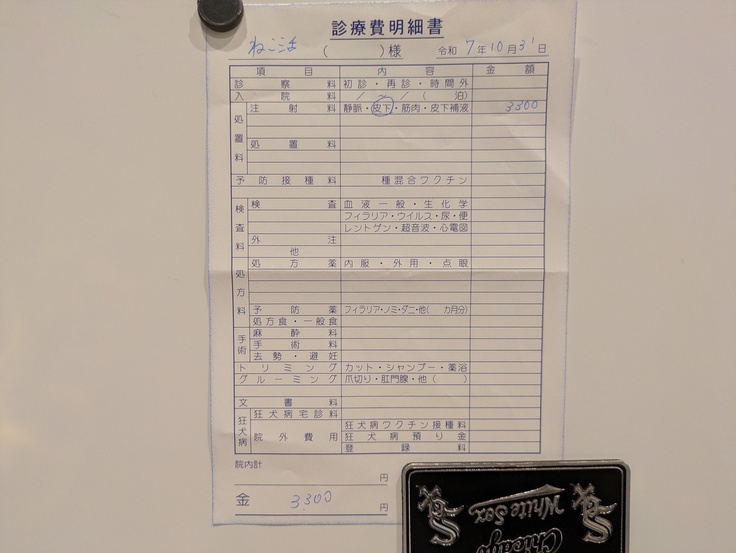 診療費明細書
ねこ三毛 ( )様 令和 7年10月31日
項目 内容 金額
診察料 初診・再診・時間外
入院料 / ~ / ( 泊)
処置料
注射料 静脈・皮下・筋肉・皮下補液 3300
処置料
予防接種料 種混合ワクチン
検査料
検査 血液一般・生化学
フィラリア・ウイルス・尿・便
レントゲン・超音波・心電図
外注
他
処方料
処方薬 内服・外用・点眼
予防薬 フィラリア・ノミ・ダニ・他( カ月分)
処方食・一般食
手術
麻酔料
手術料
去勢・避妊
トリミング カット・シャンプー・薬浴
グルーミング 爪切り・肛門腺・他( )
文書料
狂犬病
狂犬病宅診料
院外費用 狂犬病ワクチン接種料
狂犬病預り金
登録料
院内計
円
金 3,300 円
Sox
White Sox
Sox
Chicago